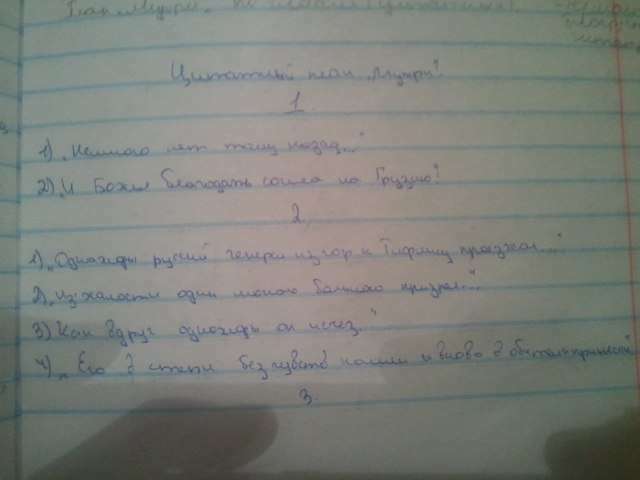 План „Мцыри"
Цитатный план „Мцыри".
1
1) „Немного лет тому назад..."
2) „И Божья благодать сошла на Грузию".
2.
1) „Однажды русский генерал из гор к Тифлису проезжал..."
2) „Из жалости один монах больного призрел..."
3) Как вдруг однажды он исчез..."
4) „Его в степи без чувств нашли и вновь в обитель принесли"
3